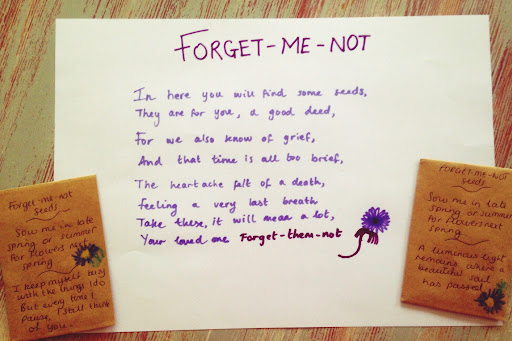 FORGET-ME-NOT
In here you will find some seeds,
They are for you, a good deed,
For we also know of grief,
And that time is all too brief,
The heartache felt of a death,
Feeling a very last breath
Take these, it will mean a lot,
Your loved one Forget-them-not
Forget-me-not
seeds
Sow me in late
spring or summer
for flowers next
spring
I keep myself busy
with the things I do
But every time I
pause, I still think
of you.
FORGET-ME-NOT
SEEDS
Sow me in late
spring or summer
for flowers next
spring
A luminous light
remains where a
beautiful soul
has passed